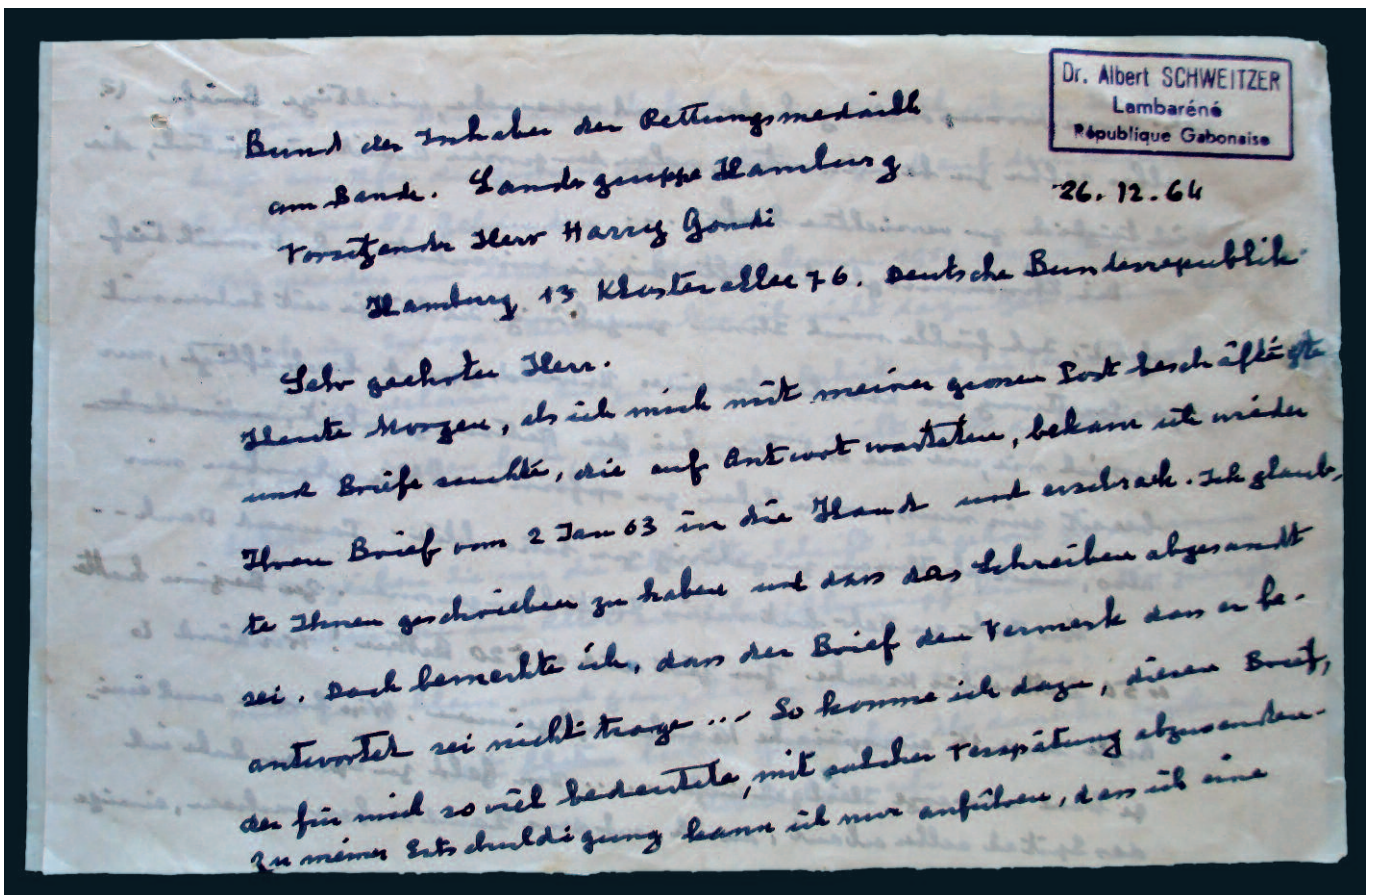 Dr. Albert SCHWEITZER
Lambaréné
République Gabonaise
26.12.64
Bund der Inhaber der Rettungsmedaille
am Bande. Landsgruppe Hamburg
Vorsitzender Herr Harry Gondi
Hamburg 13 Klosterallee 76. Deutsche Bundesrepublik
Sehr geehrter Herr.
Heute Morgen, als ich mich mit meiner grossen Post beschäftigte
und Briefe suchte, die auf Antwort warteten, bekam ich wieder
Ihren Brief vom 2 Jan 63 in die Hand und erschrack. Ich glaub-
te Ihnen geschrieben zu haben und dass das Schreiben abgesandt
sei. Doch bemerkte ich, dass der Brief den Vermerk dass er be-
antwortet sei nicht trage... So komme ich dazu, diesen Brief,
der für mich so viel bedeutete, mit solcher Verspätung abzusenden.
Zu meiner Entschuldigung kann ich nur anführen, dass ich eine